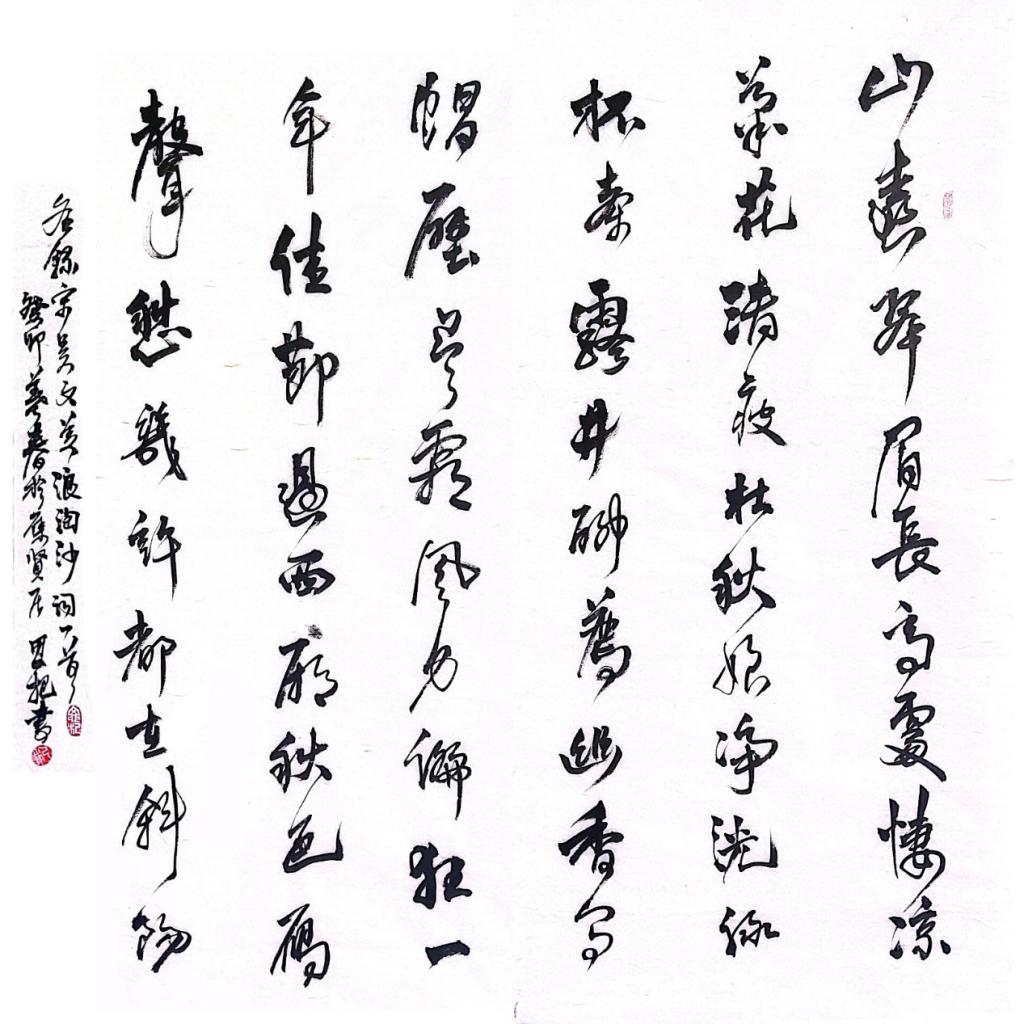 山遠翠眉長高處悽凉
菊花清瘦杜秋娘淨洗綠
杯牽露井聊薦幽香烏
帽壓吴霜風力偏狂一
年佳節過西廂秋色雁
聲愁幾許都在斜陽
右錄宋吴文英浪淘沙詞一首
癸卯暮春於賢居書